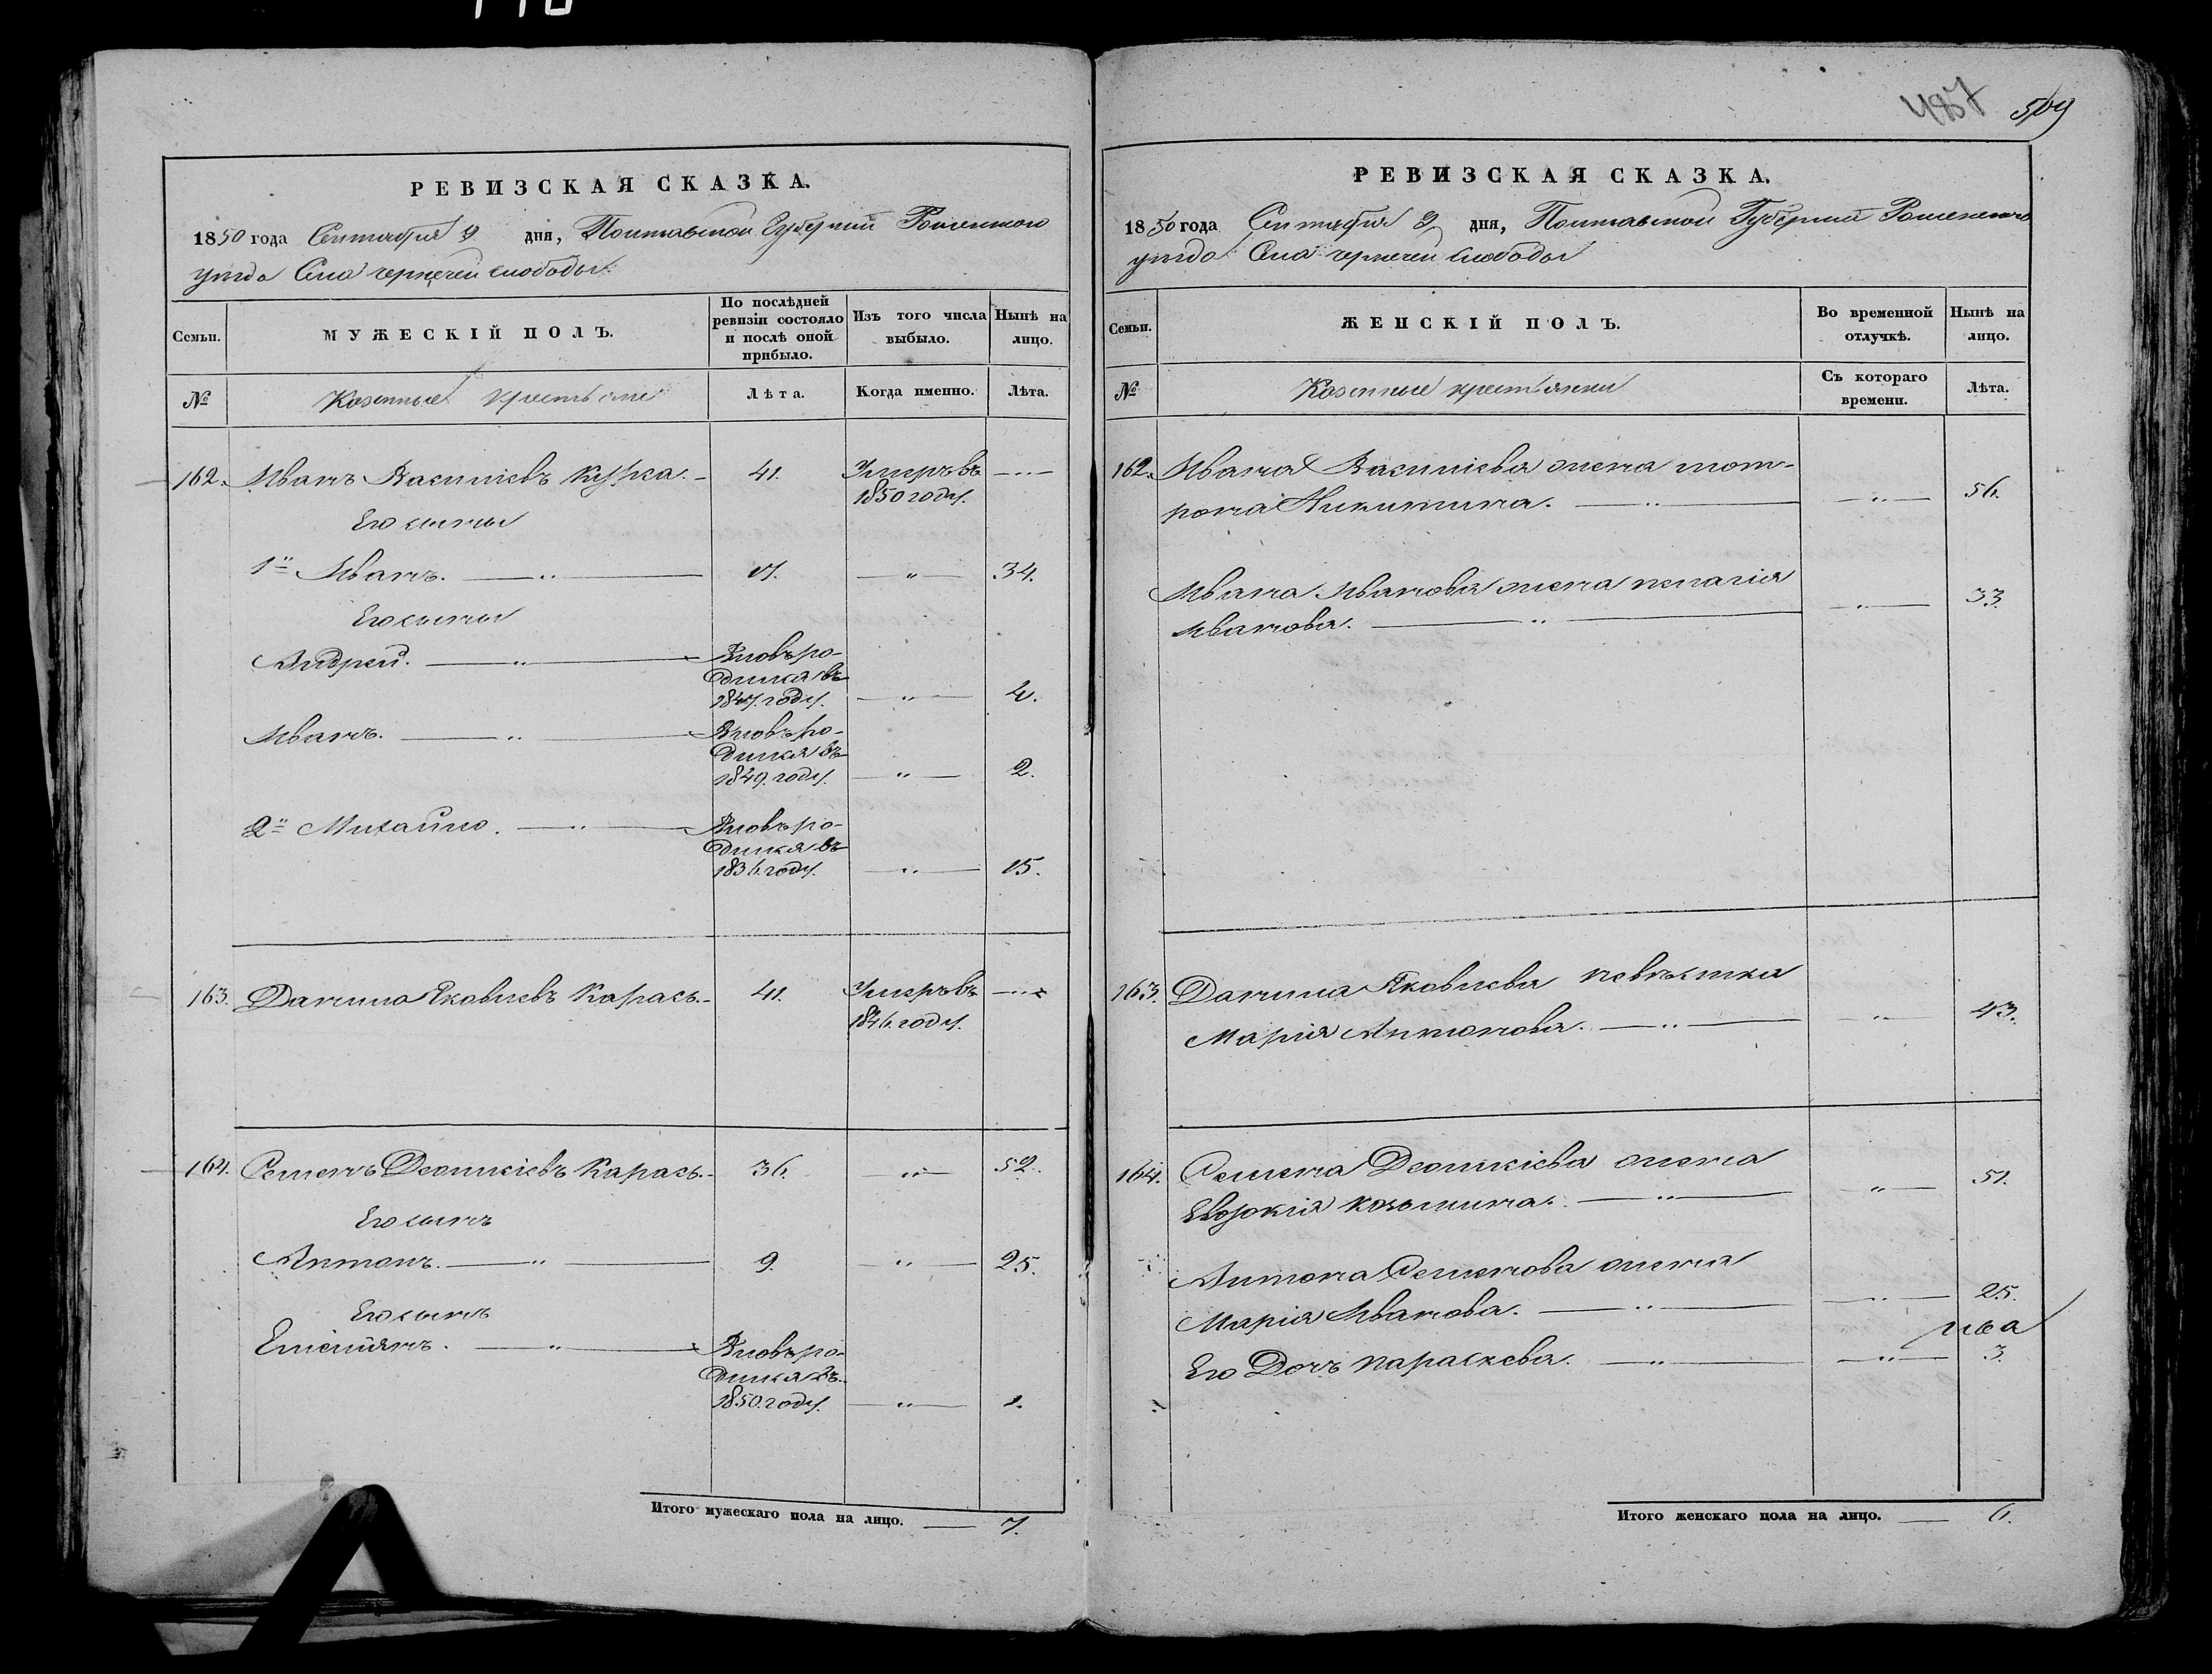 487 509
РЕВИЗСКАЯ СКАЗКА.
1850 года Сентября 9 дня, Полтавской Губерніи Роменского
уезда Села чернечей слободы.
Семьи. МУЖЕСКІЙ ПОЛЪ. По послѣдней ревизіи состояло и послѣ оной прибыло. Изъ того числа выбыло. Нынѣ на лицо.
№ Казенные крестьяне Лѣта. Когда именно. Лѣта.
162. Иванъ Васильевъ 41. Умеръ въ 1850 году.
Его сыны
1й Иванъ. 17. 34.
Его сыны
Андрей. Вновь родился въ 1847. году. 4.
Иванъ. Вновь родился въ 1849. году. 2.
2й Михайло. Вновь родился въ 1836. году. 15.
163. Данило Яковлевъ Карась. 41. Умеръ въ 1846. году.
164. Семенъ Карась. 36. 52.
Его сынъ
Антонъ. 9. 25.
Его сынъ
Емельянъ. Вновь родился въ 1850. году. 1.
Итого мужескаго пола на лицо. 7.
РЕВИЗСКАЯ СКАЗКА.
1850 года Сентября 9 дня, Полтавской Губерніи Роменского
уезда Села чернечей слободы
Семьи. ЖЕНСКІЙ ПОЛЪ. Во временной отлучкѣ. Нынѣ на лицо.
№ Казенные крестьянки Съ котораго времени. Лѣта.
162. Ивана Васильева жена мот-
рона Никитина. 56.
Ивана Иванова жена пелагія
Иванова. 33.
163. Данила Яковлева невѣстка
Марія Антонова. 43.
164. Семена жена
Евдокія козьмина. 51.
Антона Семенова жена
Марія Иванова. 25.
Его Дочъ параскева. 3.
Итого женскаго пола на лицо. 6.